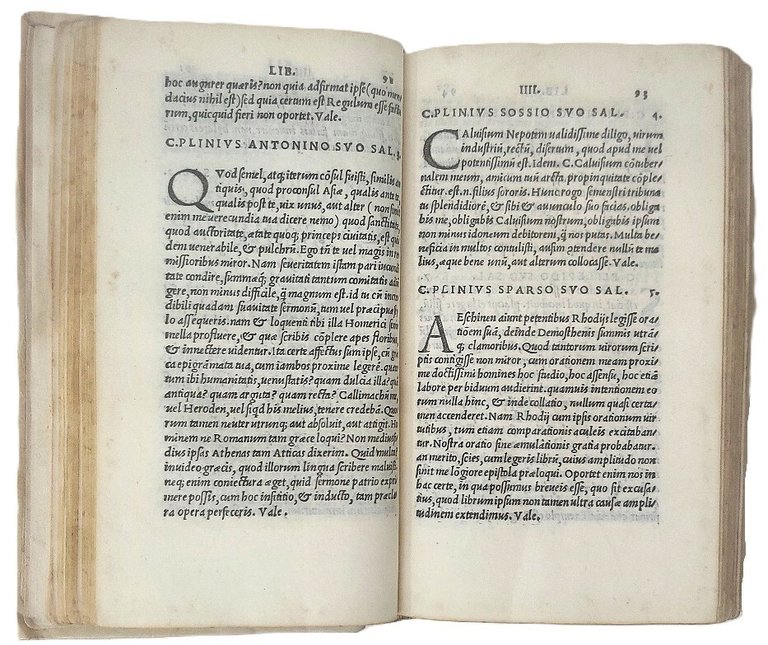 LIB.
hoc augurer quæris? non quia adfirmat ipse (quo men
dacius nihil est) sed quia certum est Regulum esse factu
rum, quicquid fieri non oportet. Vale.
C. PLINIVS ANTONINO SVO SAL. 3.
QVod semel, atq; iterum cõsul fuisti, similis an
tiquis, quod proconsul Asiæ, qualis ante te,
qualis post te, uix unus, aut alter (non sinit
enim me uerecundia tua dicere nemo) quod sanctitate,
quod auctoritate, ætate quoq; princeps ciuitatis, est qui
dem uenerabile, & pulchrũ. Ego tñ te uel magis in re
missioribus miror. Nam seueritatem istam pari iucundi
tate condire, summæq; grauitati tantum comitatis adiũ
gere, non minus difficile, q̃ magnum est. id tu cũ incre
dibili quadam suauitate sermonũ, tum uel præcipue sti
lo assequeris. nam & loquenti tibi illa Homerici senis
mella profluere, & quæ scribis cõplere apes floribus,
& innectere uidentur. Ita certe affectus sum ipse, cũ græ
ca epigrãmata tua, cum iambos proxime legerẽ. quan
tum ibi humanitatis, uenustatis? quam dulcia illa? quã
antiqua? quam arguta? quam recta? Callimachũ me,
uel Heroden, uel siqd his melius, tenere credebã. Quo
rum tamen neuter utrunq; aut absoluit, aut attigit. Ho
minem ne Romanum tam græce loqui? Non medius fi
dius ipsas Athenas tam Atticas dixerim. Quid multa?
inuideo græcis, quod illorum lingua scribere maluisti.
neq; enim coniectura æget, quid sermone patrio expri
mere possis, cum hoc insititio, & inducto, tam præcla
ra opera perfeceris. Vale.
IIII. 93
C. PLINIVS SOSSIO SVO SAL. 4.
CAluisium Nepotem ualidissime diligo, uirum
industriũ, rectũ, disertum, quod apud me uel
potentissimũ est. Idem. C. Caluisium cõtuber
nalem meum, amicum tuũ arcta propinquitate cõple
ctitur. est. n. filius sororis. Hunc rogo semestri tribuna
tu splendidiorẽ, & sibi & auunculo suo facias. obliga
bis me, obligabis Caluisium nostrum, obligabis ipsum
non minus idoneum debitorem, q̃ nos putas. Multa be
neficia in multos contulisti, ausim cõtendere nullũ te me
lius, æque bene unũ, aut alterum collocasse. Vale.
C. PLINIVS SPARSO SVO SAL. 5.
AEschinen aiunt petentibus Rhodijs legisse orati
õem suã, deinde Demosthenis summis utran
q; clamoribus. Quod tantorum uirorum scri
ptis contigisse non miror, cum orationem meam proxi
me doctissimi homines hoc studio, hoc assensu, hoc etiã
labore per biduum audierint. quamuis intentionem eo
rum nulla hinc, & inde collatio, nullum quasi certa
men accenderet. Nam Rhodij cum ipsis orationum uir
tutibus, tum etiam comparationis aculeis excitaban
tur. Nostra oratio sine æmulationis gratia probabatur.
an merito, scies, cum legeris librũ, cuius amplitudo non
sinit me lõgiore epistola præloqui. Oportet enim nos in
hac certe, in qua possumus breueis esse, quo sit excusa
tius, quod librum ipsum non tamen ultra causæ ampli
tudinem extendimus. Vale.